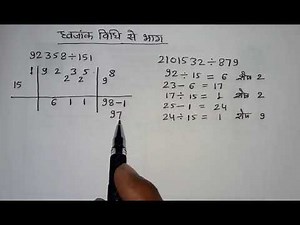 ध्वजांक विधि से भाग
92358÷151
1 9 2 3 5 8
2 2 9
15
6 1 1 98-1
97
2101532÷879
92÷15 = 6 शेष 2
23-6 = 17
17÷15 = 1 शेष 2
25-1 = 24
24÷15 = 1 शेष 9